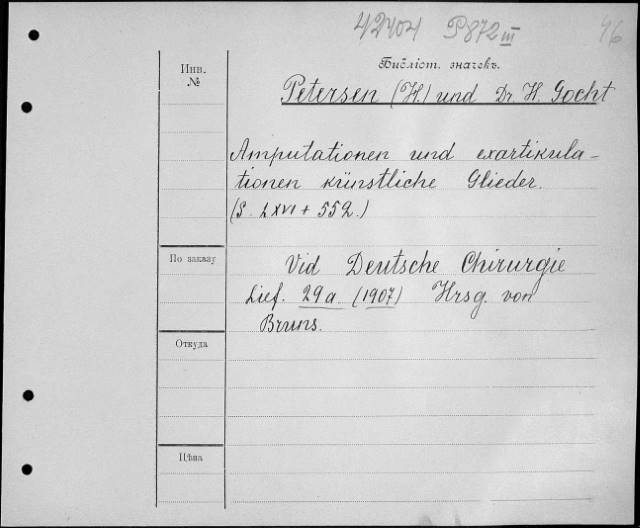 42404 P872 III 46
Инв.
№
Библіот. значекъ.
Petersen (H.) und Dr. H. Gocht
Amputationen und exartikula-
tionen künstliche Glieder.
(S. LXVI + 552.)
По заказу
Vid Deutsche Chirurgie
Lief. 29a. (1907) Hrsg. von
Bruns.
Откуда
Цѣна